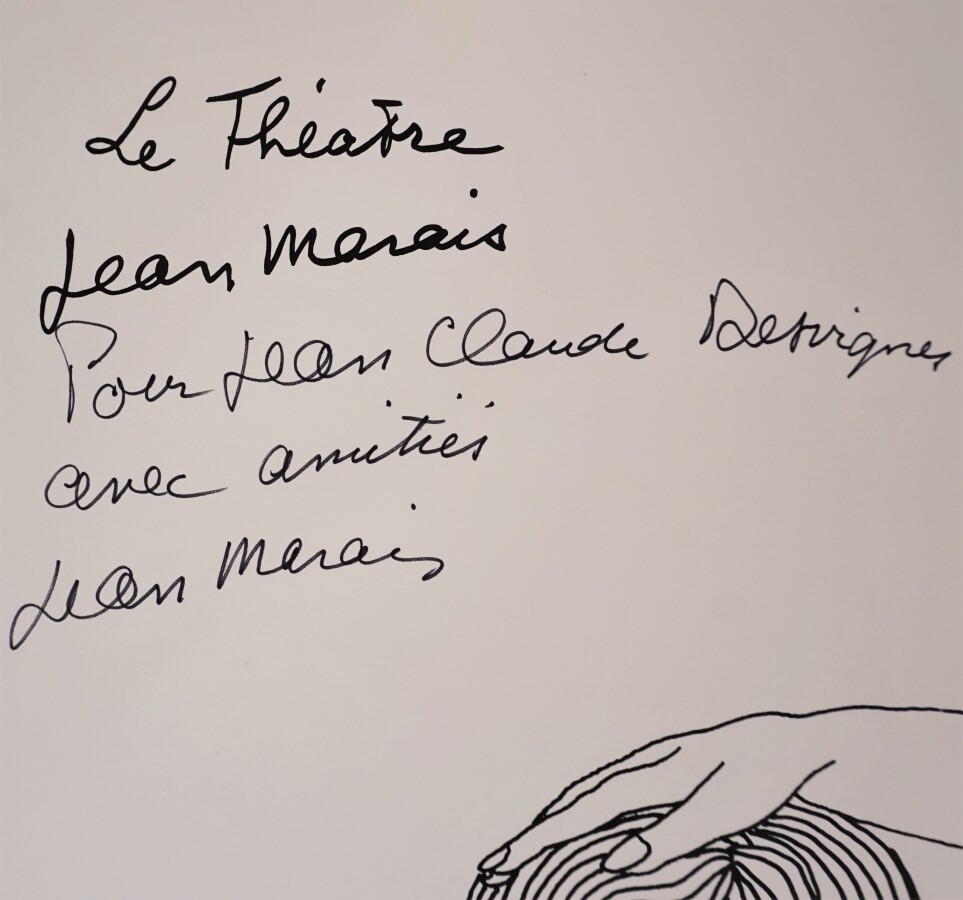 Le Théatre
Jean Marais
Pour Jean Claude Desvignes
avec amitiés
Jean Marais